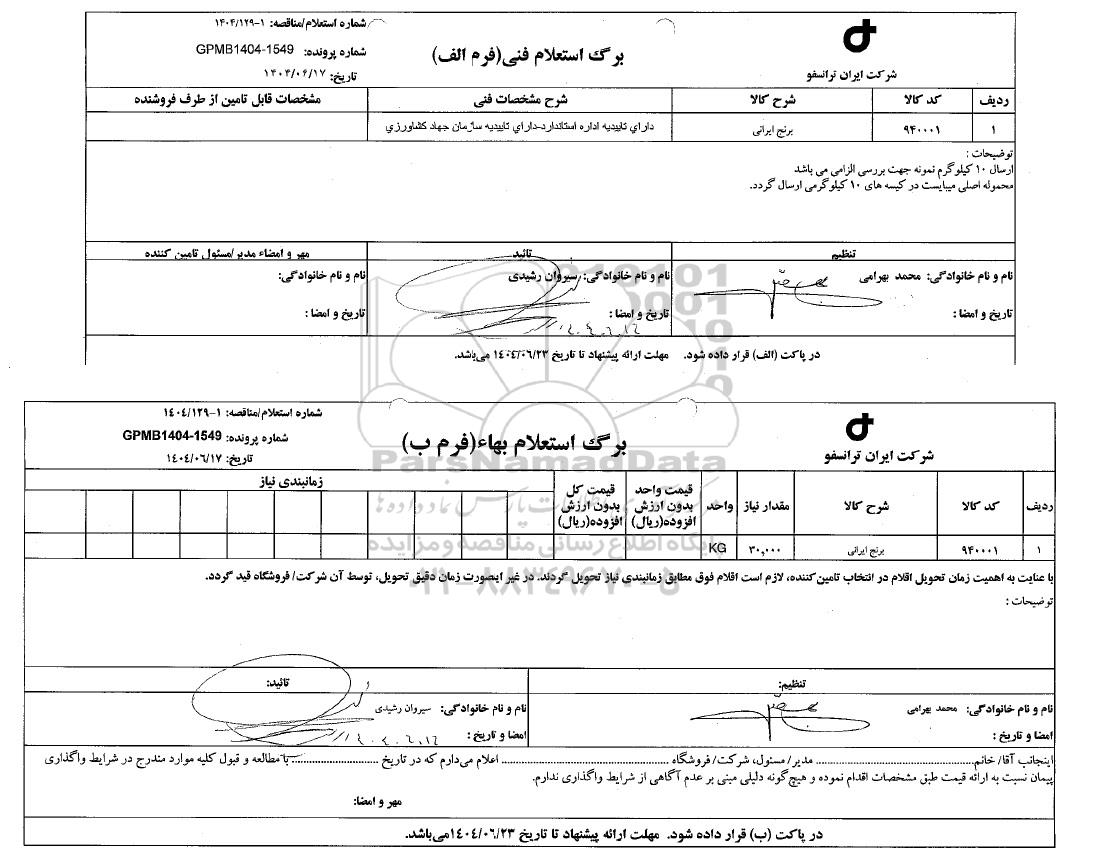 شماره استعلام/مناقصه: ۱-۱۴۰۴/۱۲۹
شماره پرونده: GPMB1404-1549
تاریخ: ۱۴۰۴/۰۶/۱۷
برگ استعلام فنی(فرم الف)
شرکت ایران ترانسفو
ردیف کد کالا شرح کالا شرح مشخصات فنی مشخصات قابل تامین از طرف فروشنده
۱ ۹۴۰۰۰۱ برنج ایرانی دارای تاییدیه اداره استاندارد-دارای تاییدیه سازمان جهاد کشاورزی
توضیحات :
ارسال ۱۰ کیلوگرم نمونه جهت بررسی الزامی می باشد
محموله اصلی میبایست در کیسه های ۱۰ کیلوگرمی ارسال گردد.
تنظیم تائید مهر و امضاء مدیر/مسئول تامین کننده
نام و نام خانوادگی: محمد بهرامی نام و نام خانوادگی: سیروان رشیدی نام و نام خانوادگی:
تاریخ و امضا : تاریخ و امضا : تاریخ و امضا :
در پاکت (الف) قرار داده شود. مهلت ارائه پیشنهاد تا تاریخ ۱۴۰۴/۰۶/۲۳ می‌باشد.
شماره استعلام/مناقصه: ۱-۱۴۰۴/۱۲۹
شماره پرونده: GPMB1404-1549
تاریخ: ۱۴۰۴/۰۶/۱۷
برگ استعلام بهاء(فرم ب)
شرکت ایران ترانسفو
ParsNamadData
ردیف کد کالا شرح کالا مقدار نیاز واحد قیمت واحد بدون ارزش افزوده(ریال) قیمت کل بدون ارزش افزوده(ریال) زمانبندی نیاز
۱ ۹۴۰۰۰۱ برنج ایرانی ۳۰,۰۰۰ KG
پایگاه اطلاع رسانی مناقصه و مزایده
۰۲۱-۸۸۳۴۹۶۷۰-۵
با عنایت به اهمیت زمان تحویل اقلام در انتخاب تامین‌کننده، لازم است اقلام فوق مطابق زمانبندی نیاز تحویل گردند. در غیر اینصورت زمان دقیق تحویل، توسط آن شرکت/ فروشگاه قید گردد.
توضیحات :
تنظیم: تائید:
نام و نام خانوادگی: محمد بهرامی نام و نام خانوادگی: سیروان رشیدی
امضا و تاریخ : امضا و تاریخ :
اینجانب آقا/ خانم........ مدیر/ مسئول، شرکت/ فروشگاه ........ اعلام می‌دارم که در تاریخ ........ با مطالعه و قبول کلیه موارد مندرج در شرایط واگذاری
پیمان نسبت به ارائه قیمت طبق مشخصات اقدام نموده و هیچ‌گونه دلیلی مبنی بر عدم آگاهی از شرایط واگذاری ندارم.
مهر و امضا:
در پاکت (ب) قرار داده شود. مهلت ارائه پیشنهاد تا تاریخ ۱۴۰۴/۰۶/۲۳می‌باشد.